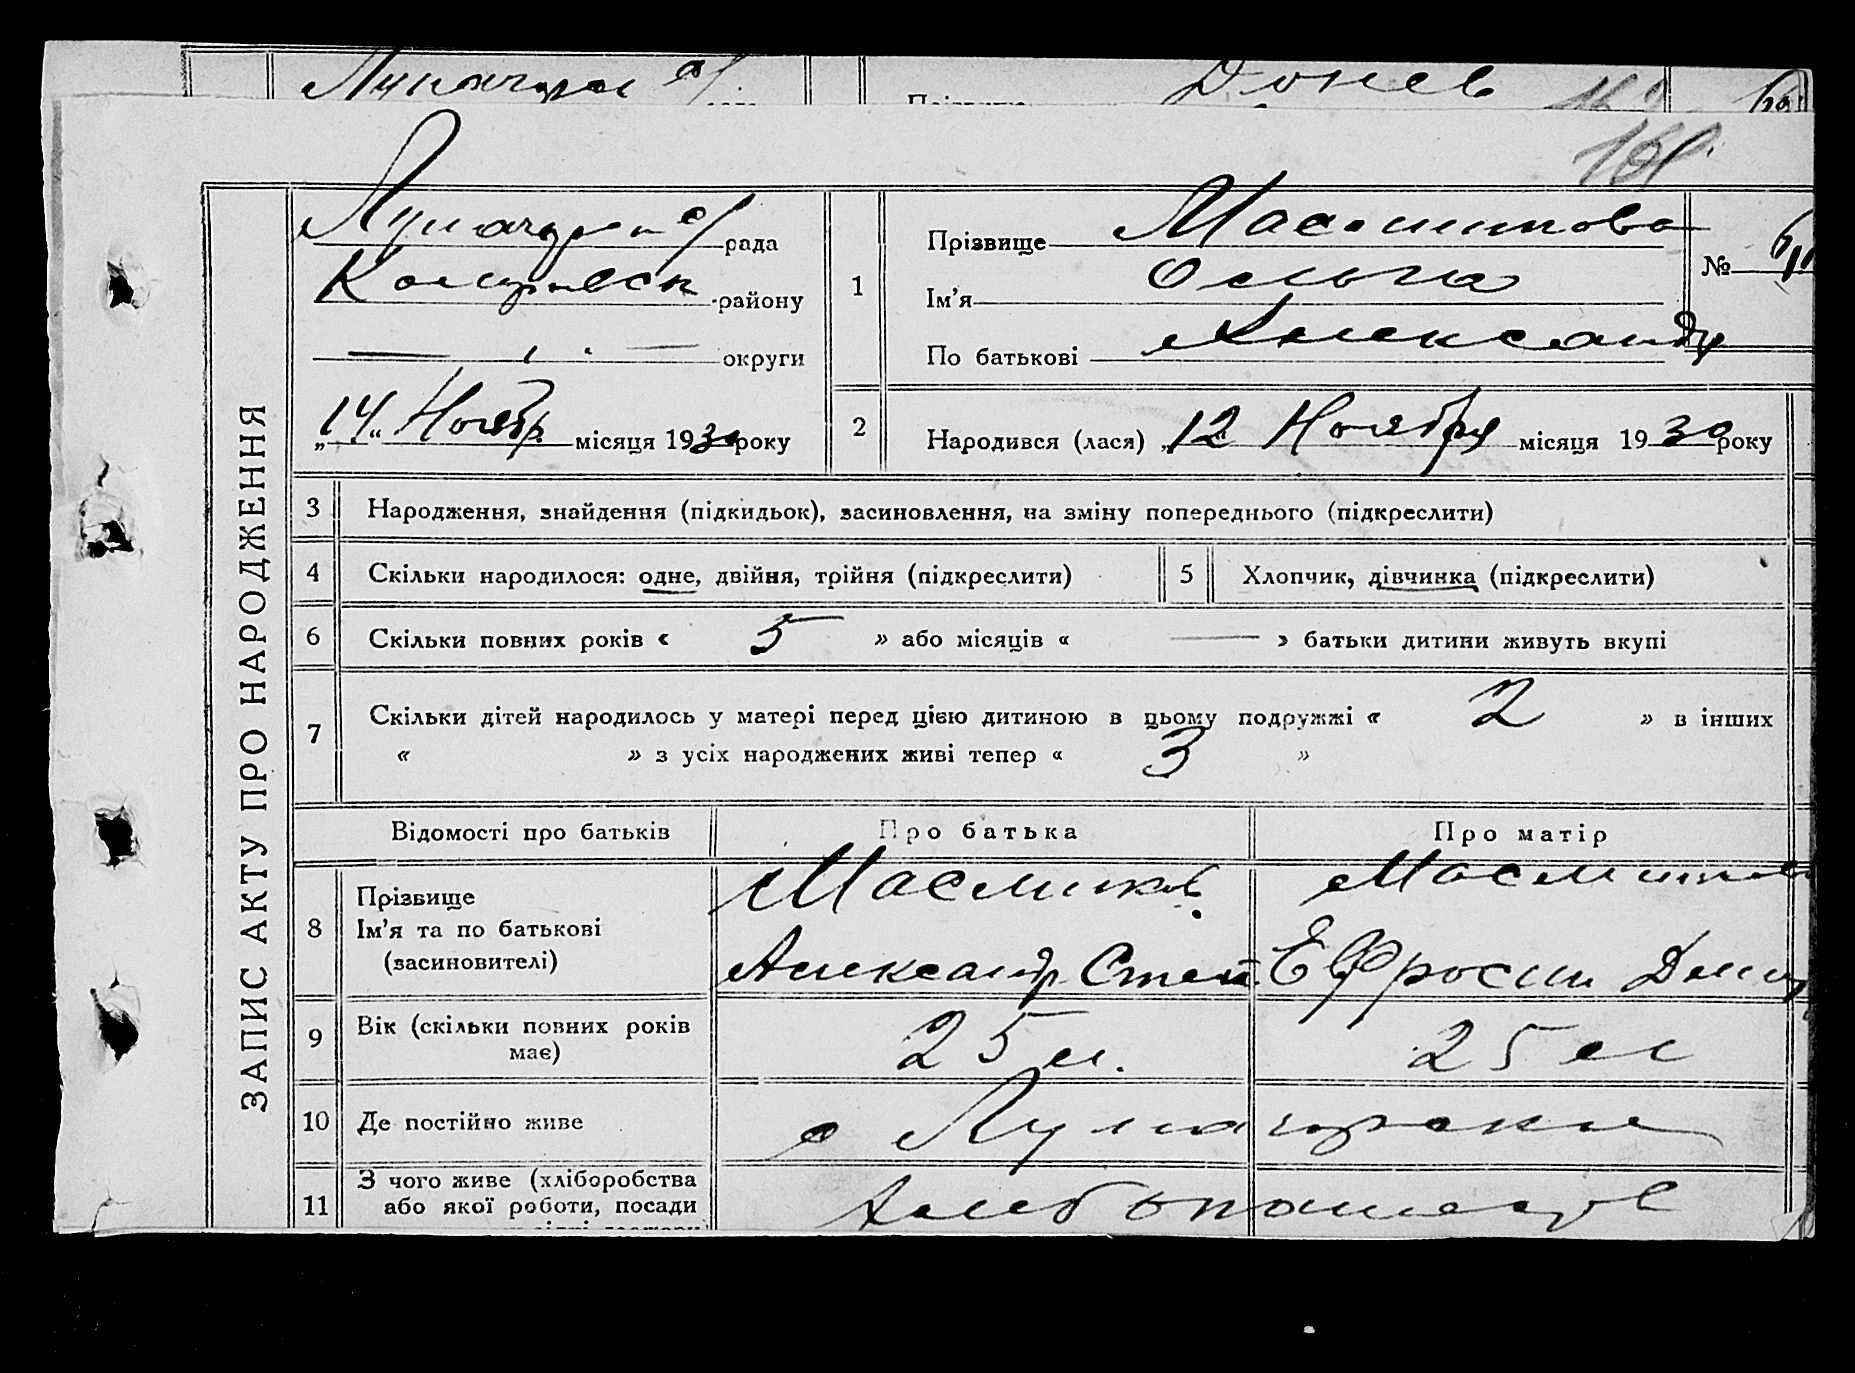 Донев
ЗАПИС АКТУ ПРО НАРОДЖЕННЯ
рада
району
округи
„14“ Ноябр. місяця 1930 року
1
Прізвище Масликова
Ім'я Ольга
По батькові Александр
№
2
Народився (лася) „12 Ноября місяця 1930 року
3 Народження, знайдення (підкидьок), засиновлення, на зміну попереднього (підкреслити)
4 Скільки народилося: одне, двійня, трійня (підкреслити)
5 Хлопчик, дівчинка (підкреслити)
6 Скільки повних років « 5 » або місяців « — » батьки дитини живуть вкупі
7 Скільки дітей народилось у матері перед цією дитиною в цьому подружжі « 2 » в інших
« » з усіх народжених живі тепер « 3 »
Відомості про батьків
Про батька
Про матір
8
Прізвище
Ім'я та по батькові
(засиновителі)
Масликов
Александр Степ.
Ефросин
9
Вік (скільки повних років
має)
25 л.
25 л
10 Де постійно живе
с
11
З чого живе (хліборобства
або якої роботи, посади
Хлебопашест